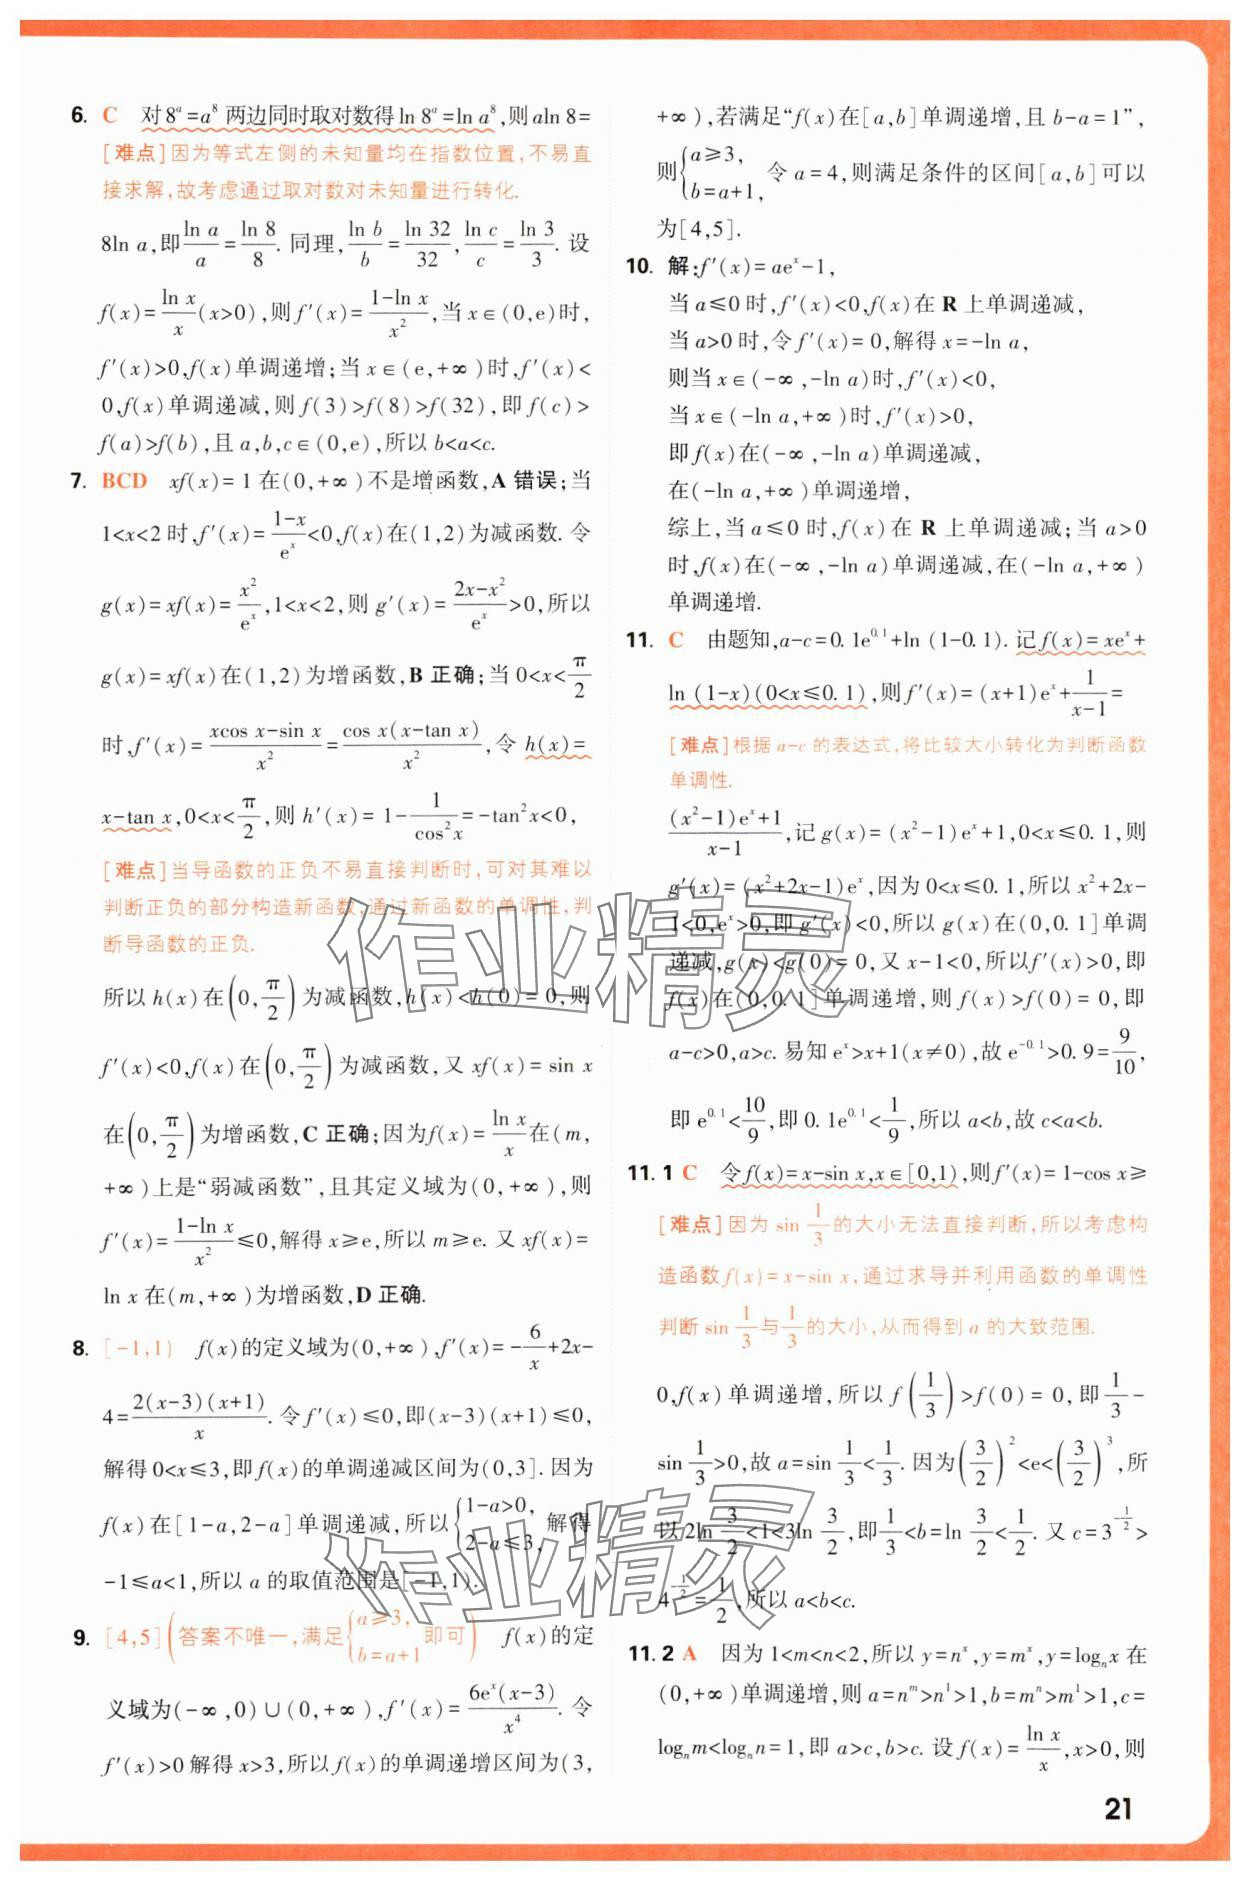 6. C 对8^a=a^8两边同时取对数得ln 8^a=ln a^8,则aln 8=
[难点]因为等式左侧的未知量均在指数位置,不易直
接求解,故考虑通过取对数对未知量进行转化.
8ln a,即\frac{ln a}{a}=\frac{ln 8}{8}.同理,\frac{ln b}{b}=\frac{ln 32}{32},\frac{ln c}{c}=\frac{ln 3}{3}.设
f(x)=\frac{ln x}{x}(x>0),则f'(x)=\frac{1-ln x}{x^2},当x∈(0,e)时,
f'(x)>0,f(x)单调递增;当x∈(e,+∞)时,f'(x)<
0,f(x)单调递减,则f(3)>f(8)>f(32),即f(c)>
f(a)>f(b),且a,b,c∈(0,e),所以b<a<c.
7. BCD xf(x)=1在(0,+∞)不是增函数,A错误;当
1<x<2时,f'(x)=\frac{1-x}{e^x}<0,f(x)在(1,2)为减函数.令
g(x)=xf(x)=\frac{x^2}{e^x},1<x<2,则g'(x)=\frac{2x-x^2}{e^x}>0,所以
g(x)=xf(x)在(1,2)为增函数,B正确;当0<x<\frac{π}{2}
时,f'(x)=\frac{xcos x-sin x}{x^2}=\frac{cos x(x-tan x)}{x^2},令h(x)=
x-tan x,0<x<\frac{π}{2},则h'(x)=1-\frac{1}{cos^2x}=-tan^2x<0,
[难点]当导函数的正负不易直接判断时,可对其难以
判断正负的部分构造新函数,通过新函数的单调性,判
断导函数的正负.
所以h(x)在(0,\frac{π}{2})为减函数,h(x)<h(0)=0,则
f'(x)<0,f(x)在(0,\frac{π}{2})为减函数,又xf(x)=sin x
在(0,\frac{π}{2})为增函数,C正确;因为f(x)=\frac{ln x}{x}在(m,
+∞)上是“弱减函数”,且其定义域为(0,+∞),则
f'(x)=\frac{1-ln x}{x^2}≤0,解得x≥e,所以m≥e.又xf(x)=
ln x在(m,+∞)为增函数,D正确.
8. [-1,1) f(x)的定义域为(0,+∞),f'(x)=-\frac{6}{x}+2x-
4=\frac{2(x-3)(x+1)}{x}.令f'(x)≤0,即(x-3)(x+1)≤0,
解得0<x≤3,即f(x)的单调递减区间为(0,3].因为
f(x)在[1-a,2-a]单调递减,所以{1-a>0, 2-a≤3,解得
-1≤a<1,所以a的取值范围是[-1,1).
9. [4,5](答案不唯一,满足{a≥3, b=a+1即可) f(x)的定
义域为(-∞,0)∪(0,+∞),f'(x)=\frac{6e^x(x-3)}{x^4}.令
f'(x)>0解得x>3,所以f(x)的单调递增区间为(3,
+∞),若满足“f(x)在[a,b]单调递增,且b-a=1”,
则{a≥3, b=a+1,令a=4,则满足条件的区间[a,b]可以
为[4,5].
10. 解:f'(x)=ae^x-1,
当a≤0时,f'(x)<0,f(x)在R上单调递减,
当a>0时,令f'(x)=0,解得x=-ln a,
则当x∈(-∞,-ln a)时,f'(x)<0,
当x∈(-ln a,+∞)时,f'(x)>0,
即f(x)在(-∞,-ln a)单调递减,
在(-ln a,+∞)单调递增,
综上,当a≤0时,f(x)在R上单调递减;当a>0
时,f(x)在(-∞,-ln a)单调递减,在(-ln a,+∞)
单调递增.
11. C 由题知,a-c=0.1e^{0.1}+ln (1-0.1).记f(x)=xe^x+
ln (1-x)(0<x≤0.1),则f'(x)=(x+1)e^x+\frac{1}{x-1}=
[难点]根据a-c的表达式,将比较大小转化为判断函数
单调性.
\frac{(x^2-1)e^x+1}{x-1},记g(x)=(x^2-1)e^x+1,0<x≤0.1,则
g'(x)=(x^2+2x-1)e^x,因为0<x≤0.1,所以x^2+2x-
1<0,e^x>0,即g'(x)<0,所以g(x)在(0,0.1]单调
递减,g(x)<g(0)=0,又x-1<0,所以f'(x)>0,即
f(x)在(0,0.1]单调递增,则f(x)>f(0)=0,即
a-c>0,a>c.易知e^x>x+1(x≠0),故e^{-0.1}>0.9=\frac{9}{10},
即e^{0.1}<\frac{10}{9},即0.1e^{0.1}<\frac{1}{9},所以a<b,故c<a<b.
11.1 C 令f(x)=x-sin x,x∈[0,1),则f'(x)=1-cos x≥
[难点]因为sin \frac{1}{3}的大小无法直接判断,所以考虑构
造函数f(x)=x-sin x,通过求导并利用函数的单调性
判断sin \frac{1}{3}与\frac{1}{3}的大小,从而得到a的大致范围.
0,f(x)单调递增,所以f(\frac{1}{3})>f(0)=0,即\frac{1}{3}-
sin \frac{1}{3}>0,故a=sin \frac{1}{3}<\frac{1}{3}.因为(\frac{3}{2})^2<e<(\frac{3}{2})^3,所
以2ln \frac{3}{2}<1<3ln \frac{3}{2},即\frac{1}{3}<b=ln \frac{3}{2}<\frac{1}{2}.又c=3^{-\frac{1}{2}}>
4^{-\frac{1}{2}}=\frac{1}{2},所以a<b<c.
11.2 A 因为1<m<n<2,所以y=n^x,y=m^x,y=log_n x在
(0,+∞)单调递增,则a=n^m>n^1>1,b=m^n>m^1>1,c=
log_n m<log_n n=1,即a>c,b>c.设f(x)=\frac{ln x}{x},x>0,则
21
作业精灵
作业精灵